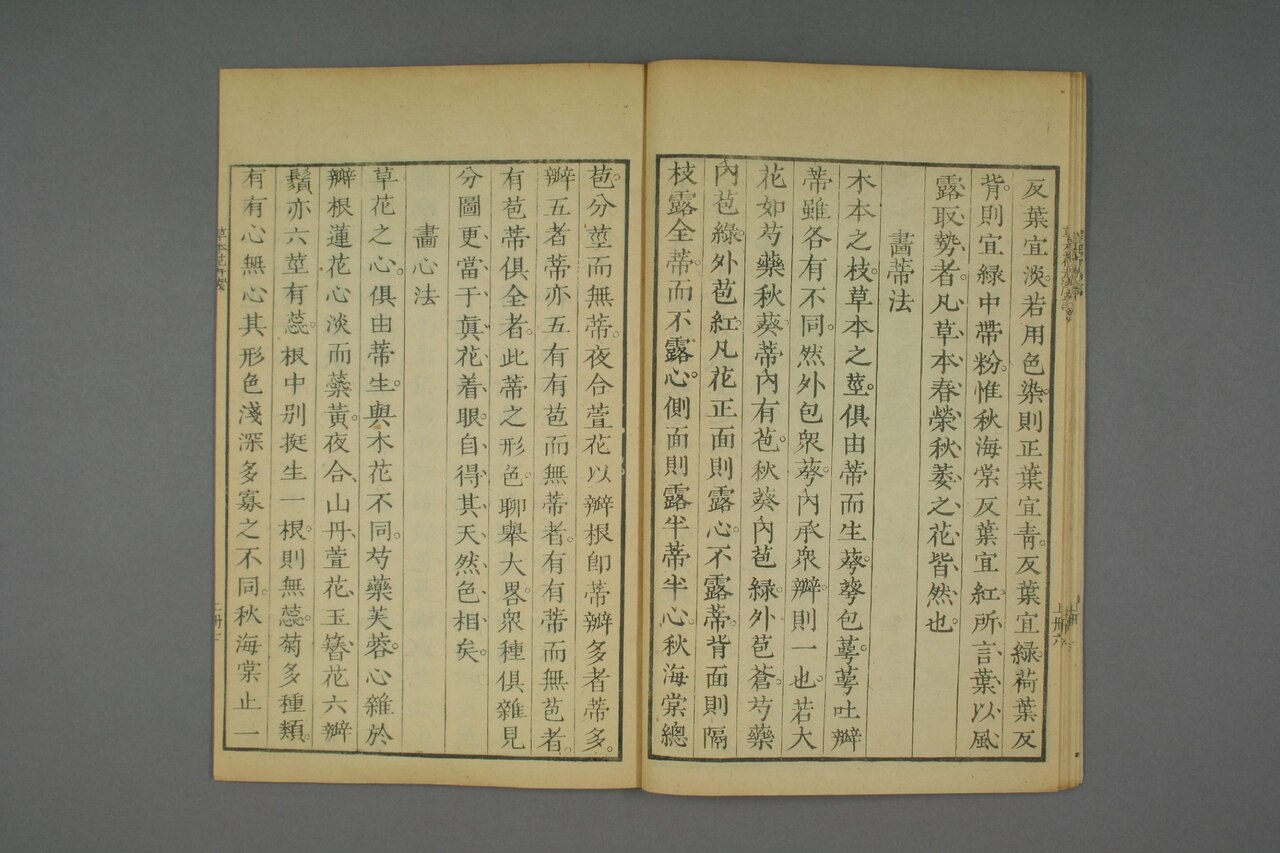 反葉宜淡。若用色染。則正葉宜青。反葉宜綠。荷葉反
背。則宜綠中帶粉。惟秋海棠反葉宜紅。所言葉以風
露取勢者。凡草本春榮秋萎之花。皆然也。
畫蒂法
木本之枝。草本之莖。俱由蒂而生蕚。蕚包蕚。蕚吐瓣
蒂雖各有不同。然外包衆蕚。內承衆瓣。則一也。若大
花如芍藥秋葵。蒂內有苞。秋葵內苞綠。外苞蒼。芍藥
內苞綠。外苞紅。凡花正面則露心。不露蒂。背面則隔
枝露全蒂。而不露心。側面則露半蒂半心。秋海棠總
苞。分莖而無蒂。夜合萱花以瓣根卽蒂。瓣多者蒂多。
瓣五者蒂亦五。有有苞而無蒂者。有有蒂而無苞者。
有苞蒂俱全者。此蒂之形色。聊舉大畧。衆種俱雜見
分圖。更當于眞花着眼。自得其天然色相矣。
畫心法
草花之心。俱由蒂生。與木花不同。芍藥芙蓉。心雜於
瓣根。蓮花心淡而蘂黃。夜合、山丹、萱花、玉簪花六瓣
鬚亦六莖有蕊。根中別挺生一根。則無蕊。菊多種類。
有有心無心。其形色淺深多寡之不同。秋海棠止一
上册六